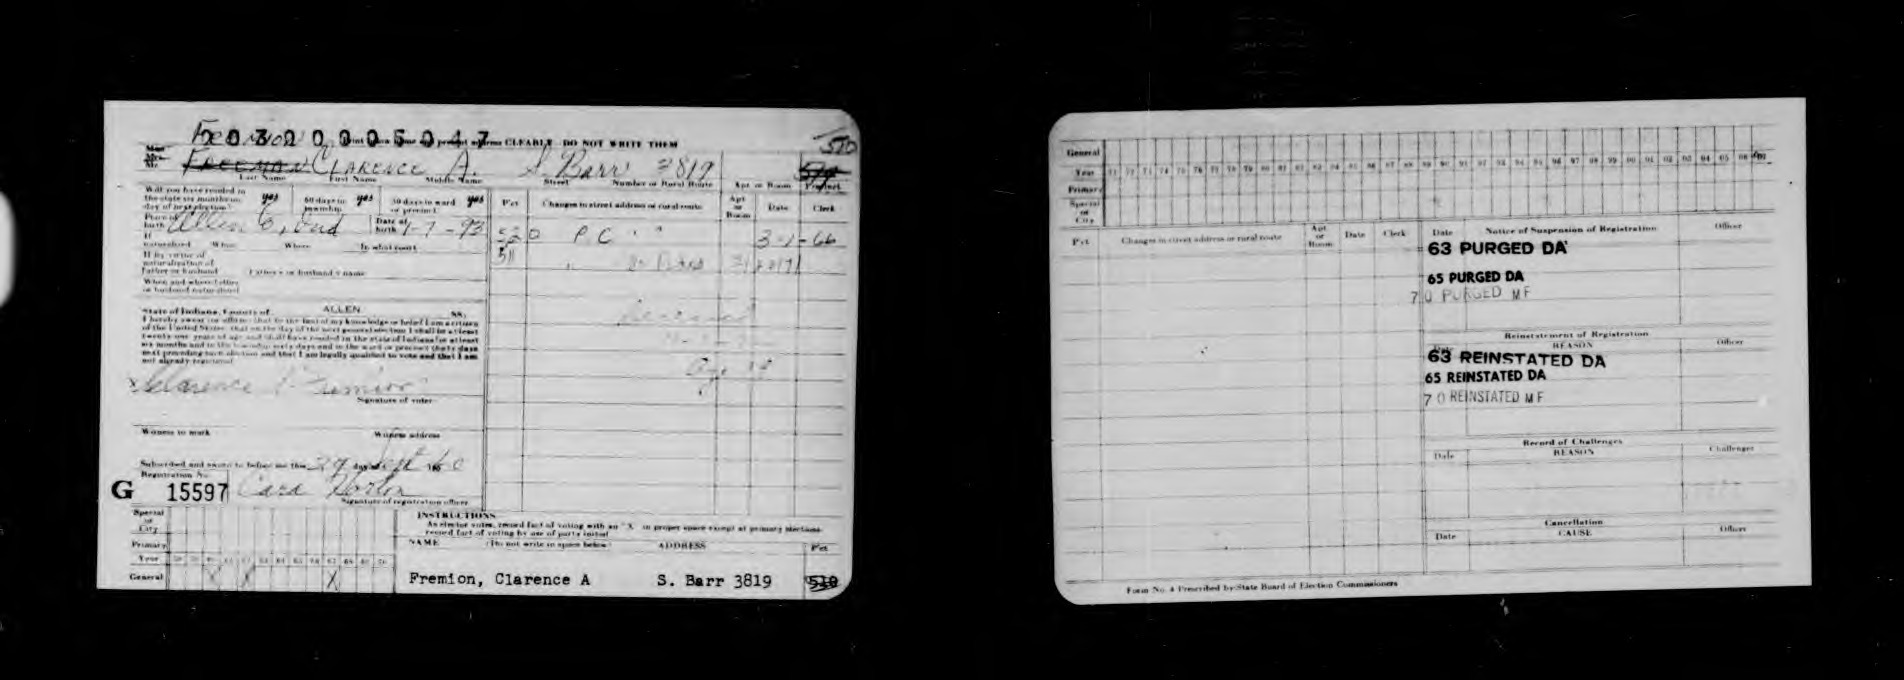 Fremion
0 0 3 2 0 0 0 5 0 4 7 CLEARLY DO NOT WRITE THEM
510
Mrs.
Mr. FREEMAN CLARENCE A. S. Barr 3819
Last Name First Name Middle Name Street Number or Rural Route Apt or Room Precinct
Will you have resided in the state six months on day of next election? yes 60 days in township yes 30 days in ward or precinct yes
Pct Changes in street address or rural route Apt or Room Date Clerk
Place of birth Allen Co, Ind Date of birth 1-7-93
520 P C " " 3-1-66
511
If naturalized When Where In what court
If by virtue of naturalization of Father or husband Father's or husband's name
When and where father or husband naturalized
State of Indiana, County of ALLEN SS:
I hereby swear (or affirm) that to the best of my knowledge or belief I am a citizen
of the United States; that on the day of the next general election I shall be at least
twenty-one years of age and shall have resided in the state of Indiana for at least
six months and in the township sixty days and in the ward or precinct thirty days
next preceding such election and that I am legally qualified to vote and that I am
not already registered.
x Clarence Fremion
Signature of voter
Witness to mark Witness address
Subscribed and sworn to before me this 29 day Sept 1960
Registration No.
G 15597 Cara Horton
Signature of registration officer
Special or City
Primary
Year
General
INSTRUCTIONS
As elector votes, record fact of voting with an "X" in proper space except at primary elections
record fact of voting by use of party initial
NAME (Do not write in space below) ADDRESS Pct
Fremion, Clarence A S. Barr 3819 510
General
Year 71 72 73 74 75 76 77 78 79 80 81 82 83 84
Primary
Special or City
Pct Changes in street address or rural route Apt or Room Date Clerk
Date Notice of Suspension of Registration Officer
63 PURGED DA
65 PURGED DA
70 PURGED MF
Reinstatement of Registration
Date REASON Officer
63 REINSTATED DA
65 REINSTATED DA
70 REINSTATED MF
Record of Challenges
Date REASON Challenger
Cancellation
Date CAUSE Officer
Form No. 4 Prescribed by State Board of Election Commissioners